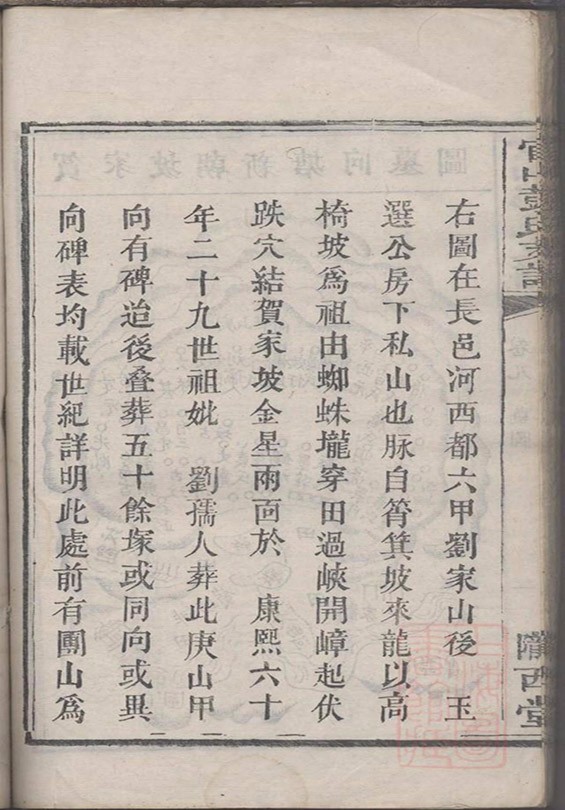 右圖在長邑河西都六甲劉家山後　玉
選公房下私山也脉自筲箕坡來龍以高
椅坡爲祖由蜘蛛壠穿田過峽開嶂起伏
跌穴結賀家坡金星兩面於　康熙六十
年二十九世祖妣　劉孺人葬此庚山甲
向有碑迨後叠葬五十餘塚或同向或異
向碑表均載世紀詳明此處前有團山爲
隴西堂
賀家坡朝新塘向墓圖